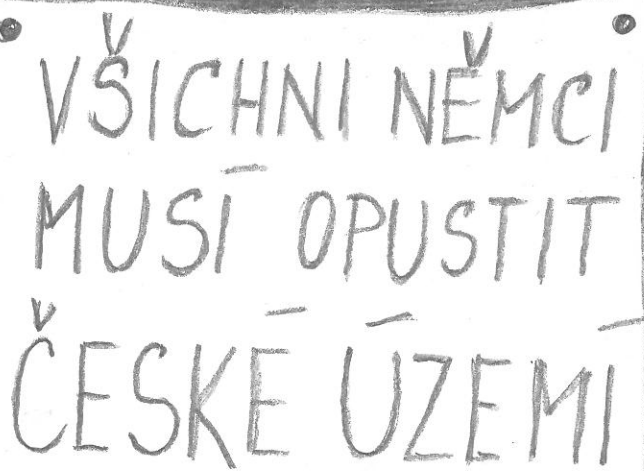 VŠICHNI NĚMCI
MUSÍ OPUSTIT
ČESKÉ ÚZEMÍ